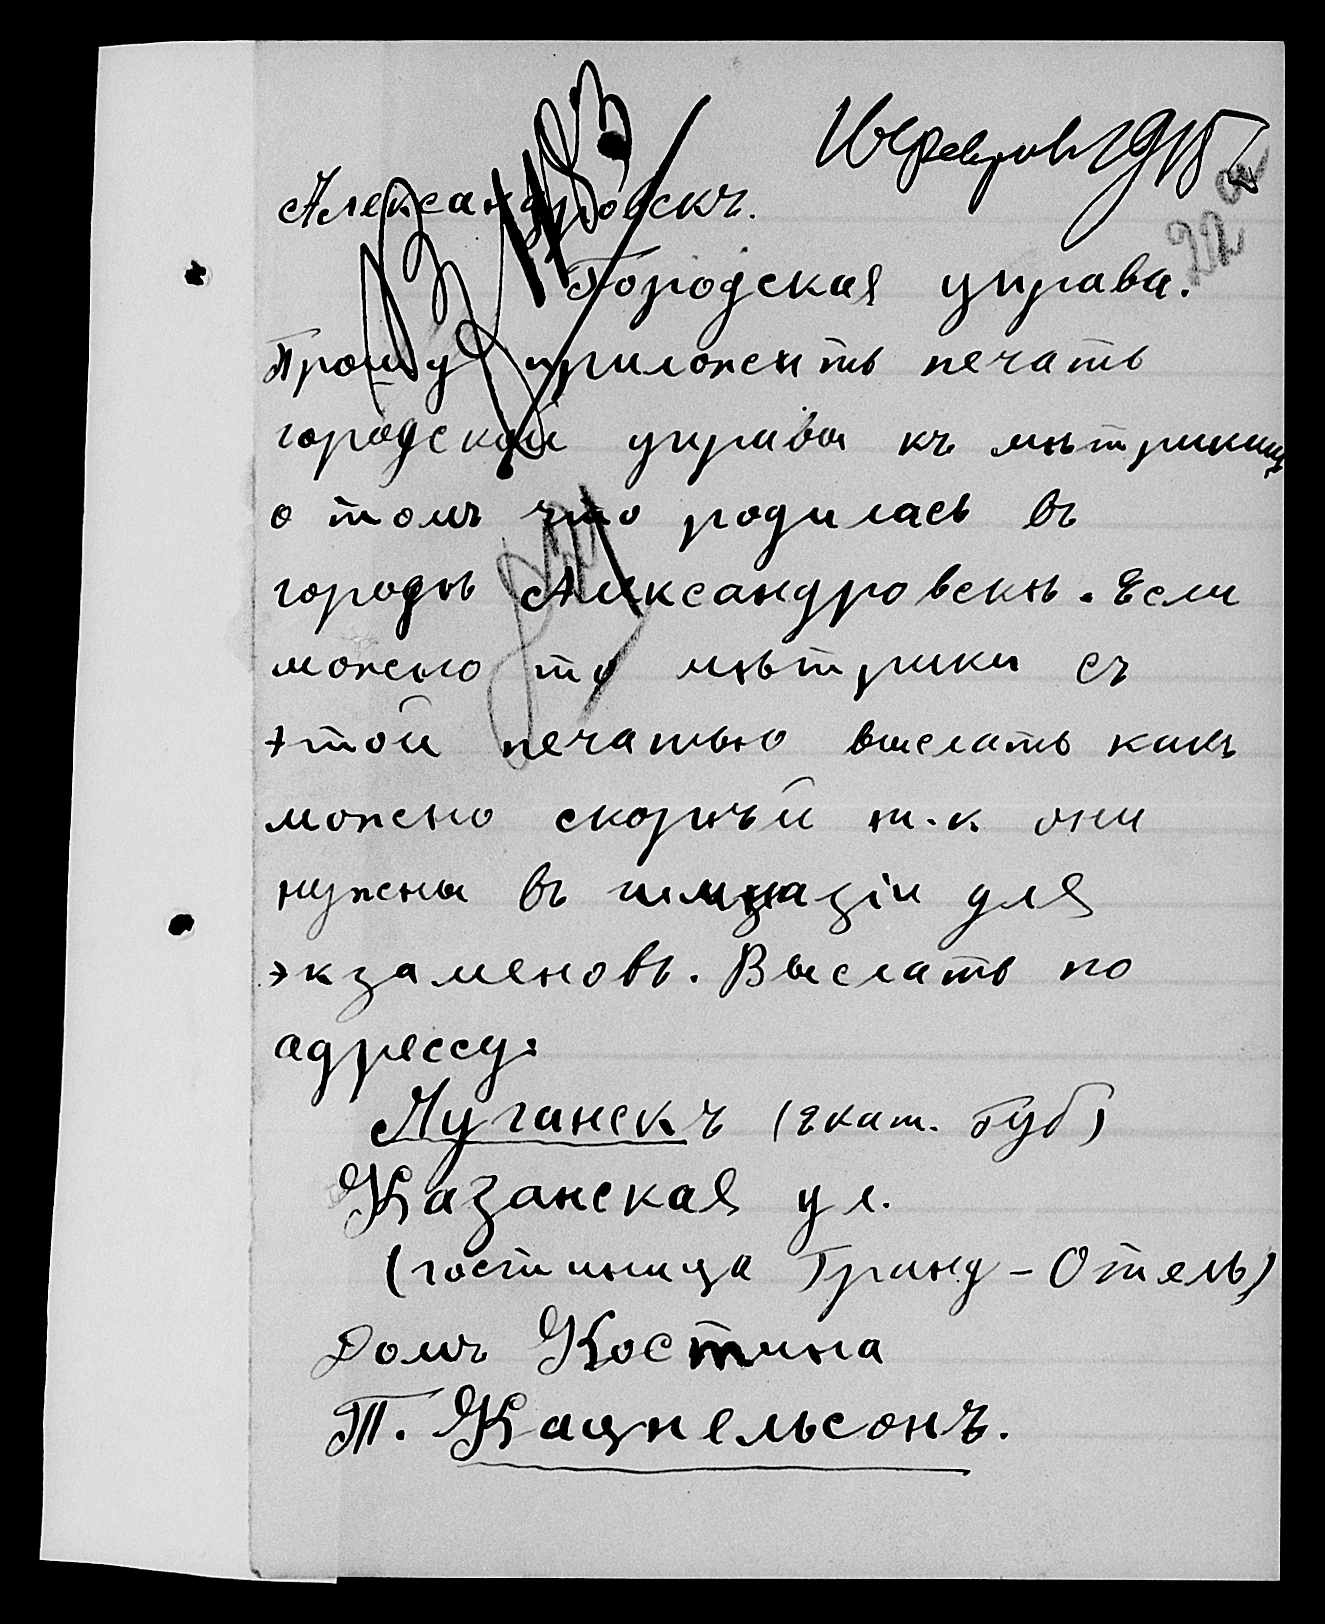 Февраля 1915
Александровскъ.
Городская управа.
Прошу приложить печать
городской управы къ мѣтрикамъ
о томъ что родилась въ
городѣ Александровскѣ. Если
можно то мѣтрики съ
этой печатью выслать какъ
можно скорѣй т.к они
нужны въ гимназіи для
экзаменовъ. Выслать по
адрессу:
Луганскъ (Екат. Губ)
Казанская ул.
(гостиница Гранд-Отель)
Домъ Костина
Т. Кацнельсонъ.